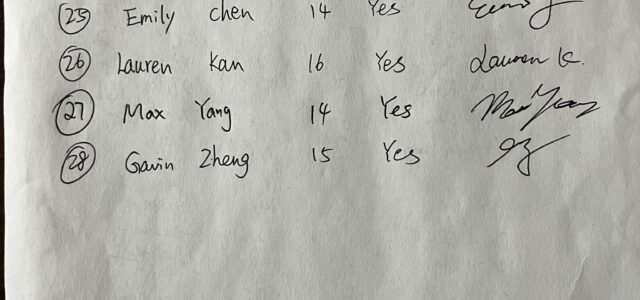 25 Emily chen 14 Yes
26 Lauren Kan 16 Yes Lauren K.
27 Max Yang 14 Yes Max Yang
28 Gavin Zheng 15 Yes GZ